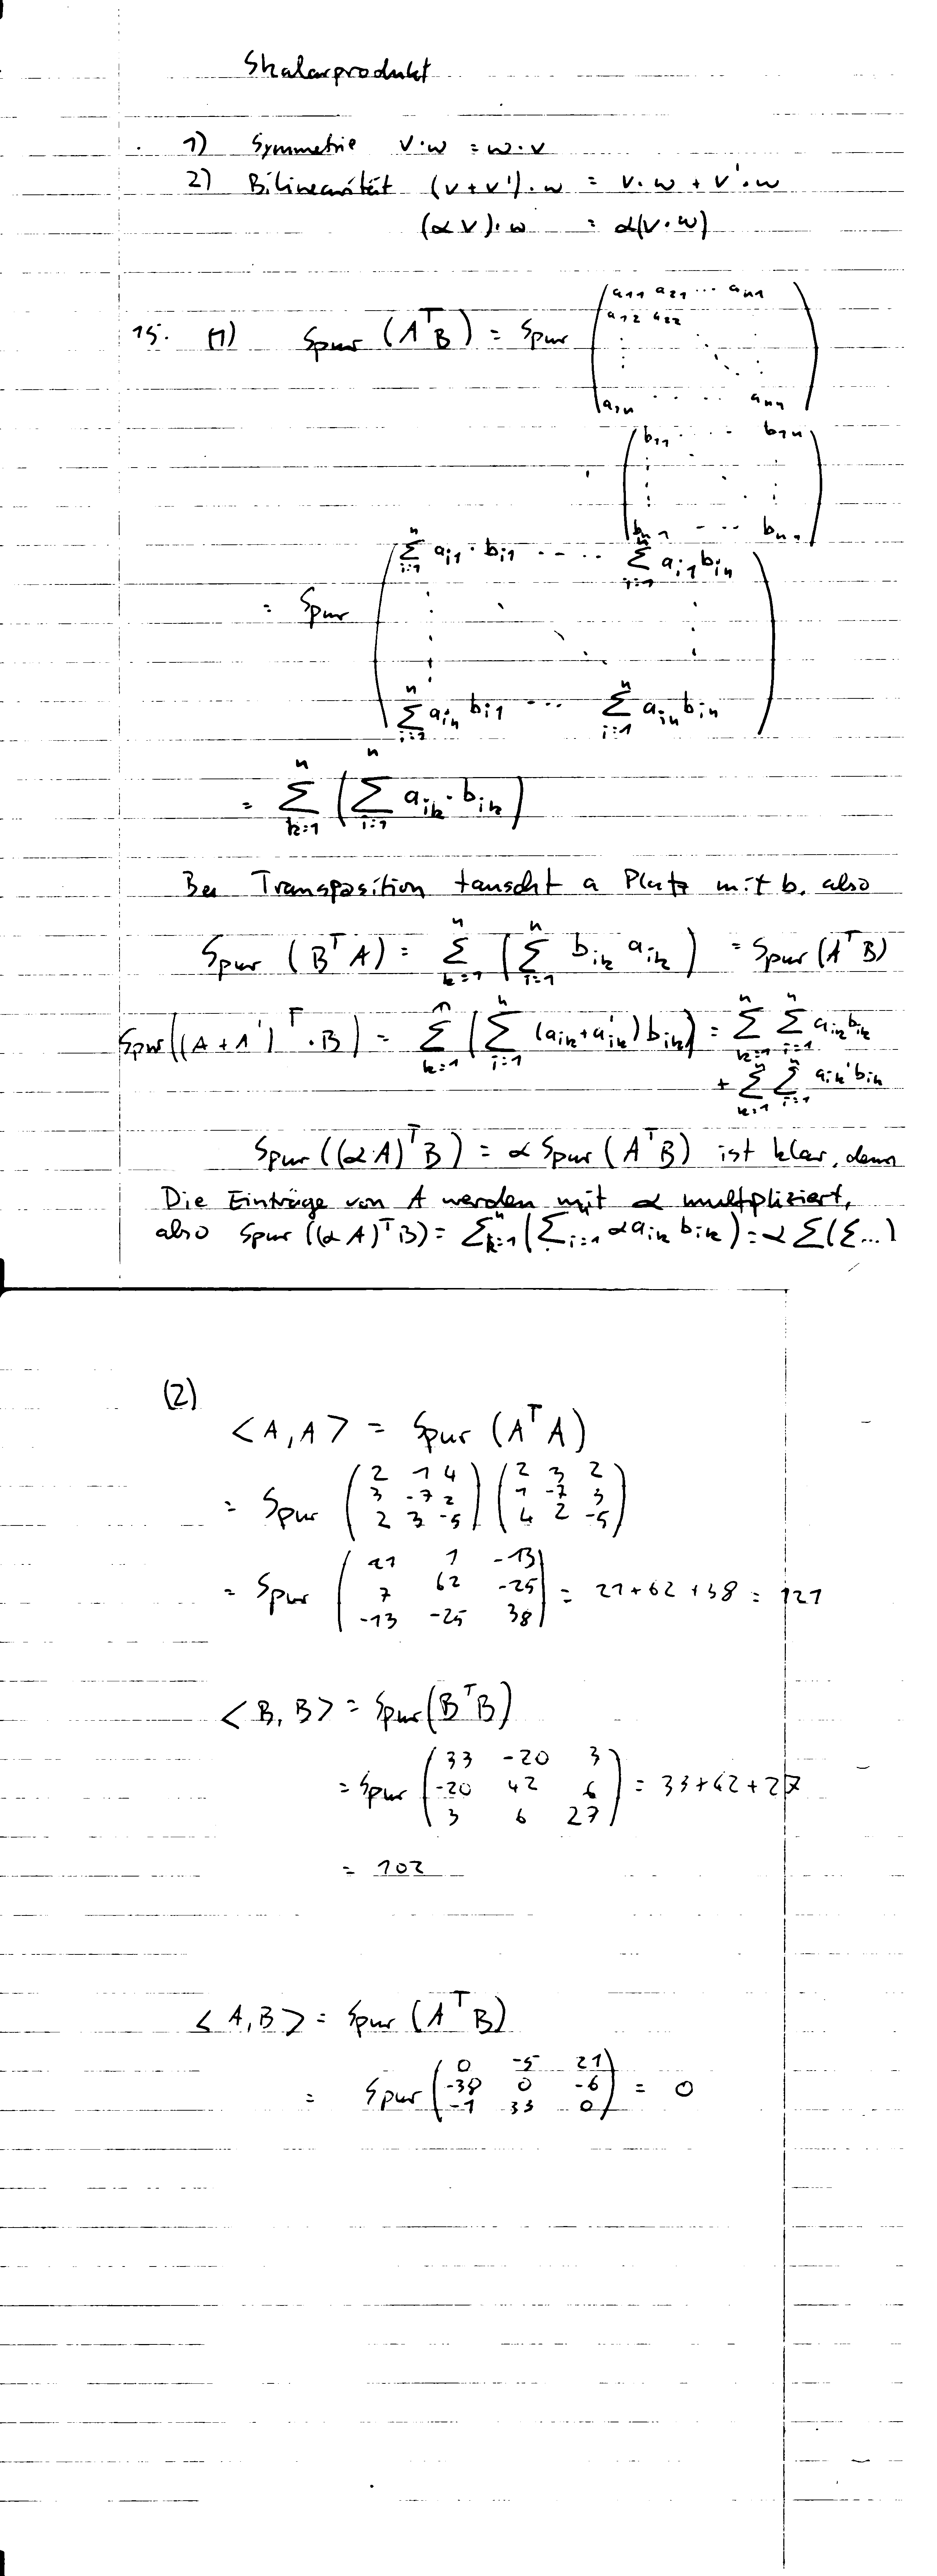 Skalarprodukt
1) Symmetrie v·w = w·v
2) Bilinearität (v+v')·w = v·w + v'·w
(αv)·w = α(v·w)
15. (1) Spur (AᵀB) = Spur
(a₁₁ a₂₁ ··· aₙ₁
a₁₂ a₂₂
a₁ₙ ···· aₙₙ)
· (b₁₁ ··· b₁ₙ
bₙ₁ ··· bₙₙ)
= Spur
(∑ⁿᵢ₌₁ aᵢ₁·bᵢ₁ ···· ∑ⁿᵢ₌₁ aᵢ₁bᵢₙ
∑ⁿᵢ₌₁ aᵢₙbᵢ₁ ··· ∑ⁿᵢ₌₁ aᵢₙbᵢₙ)
= ∑ⁿₖ₌₁ (∑ⁿᵢ₌₁ aᵢₖ·bᵢₖ)
Bei Transposition tauscht a Platz mit b, also
Spur (BᵀA) = ∑ⁿₖ₌₁ (∑ⁿᵢ₌₁ bᵢₖ aᵢₖ) = Spur(AᵀB)
Spur((A+A')ᵀ·B) = ∑ⁿₖ₌₁ (∑ⁿᵢ₌₁ (aᵢₖ+a'ᵢₖ)bᵢₖ) = ∑ⁿₖ₌₁ ∑ⁿᵢ₌₁ aᵢₖbᵢₖ
+ ∑ⁿₖ₌₁ ∑ⁿᵢ₌₁ aᵢₖ'bᵢₖ
Spur((αA)ᵀB) = α Spur(AᵀB) ist klar, denn
Die Einträge von A werden mit α multpliziert,
also Spur((αA)ᵀB) = ∑ⁿₖ₌₁(∑ᵢ₌₁ αaᵢₖ bᵢₖ) = α ∑(∑...)
(2)
<A,A> = Spur (AᵀA)
= Spur
(2 1 4) (2 3 2)
(3 -7 2) (1 -7 3)
(2 3 -5) (4 2 -5)
= Spur
(21 1 -13)
(7 62 -25) = 21+62+38 = 121
(-13 -25 38)
<B,B> = Spur(BᵀB)
(33 -20 3)
= Spur (-20 42 6) = 33+42+27
(3 6 27)
= 102
<A,B> = Spur (AᵀB)
(0 -5 21)
= Spur (-38 0 -6) = 0
(-1 33 0)